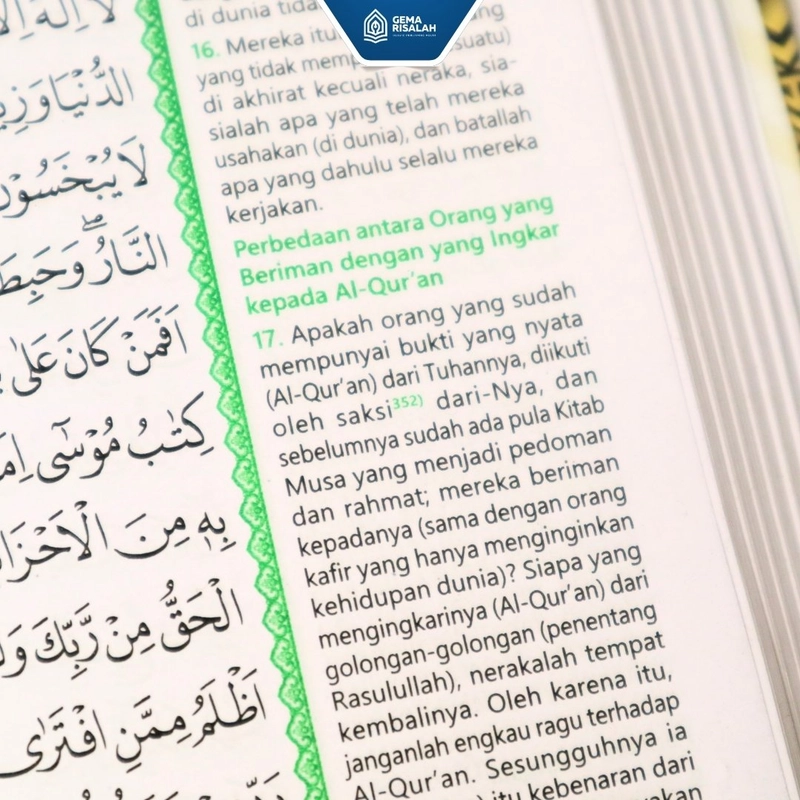 GEMA
RISALAH
لَآ اِلٰهَ اِلَّا
الدُّنْيَا وَزِيْ
لَا يُبْخَسُوْنَ
النَّارُ ۖوَحَبِطَ
اَفَمَنْ كَانَ عَلٰى
كِتٰبُ مُوْسٰٓى
بِهٖ مِنَ الْاَحْزَا
الْحَقُّ مِنْ رَّبِّكَ
اَظْلَمُ مِمَّنِ افْتَرٰى
di dunia
16. Mereka itu
yang tidak suatu)
di akhirat kecuali neraka, sia-
sialah apa yang telah mereka
usahakan (di dunia), dan batallah
apa yang dahulu selalu mereka
kerjakan.
Perbedaan antara Orang yang
Beriman dengan yang Ingkar
kepada Al-Qur'an
17. Apakah orang yang sudah
mempunyai bukti yang nyata
(Al-Qur'an) dari Tuhannya, diikuti
oleh saksi352) dari-Nya, dan
sebelumnya sudah ada pula Kitab
Musa yang menjadi pedoman
dan rahmat; mereka beriman
kepadanya (sama dengan orang
kafir yang hanya menginginkan
kehidupan dunia)? Siapa yang
mengingkarinya (Al-Qur'an) dari
golongan-golongan (penentang
Rasulullah), nerakalah tempat
kembalinya. Oleh karena itu,
janganlah engkau ragu terhadap
Al-Qur'an. Sesungguhnya ia
itu kebenaran dari